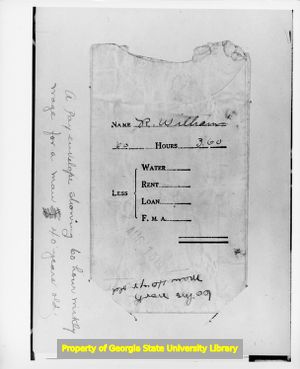 A Pay envelope showing 60 hour weekly
wage for a man 40 years old
NAME R. Witham
60 HOURS 3.60
LESS
WATER
RENT
LOAN
F. M. A.
60 hrs work
man 40 yr old
Property of Georgia State University Library